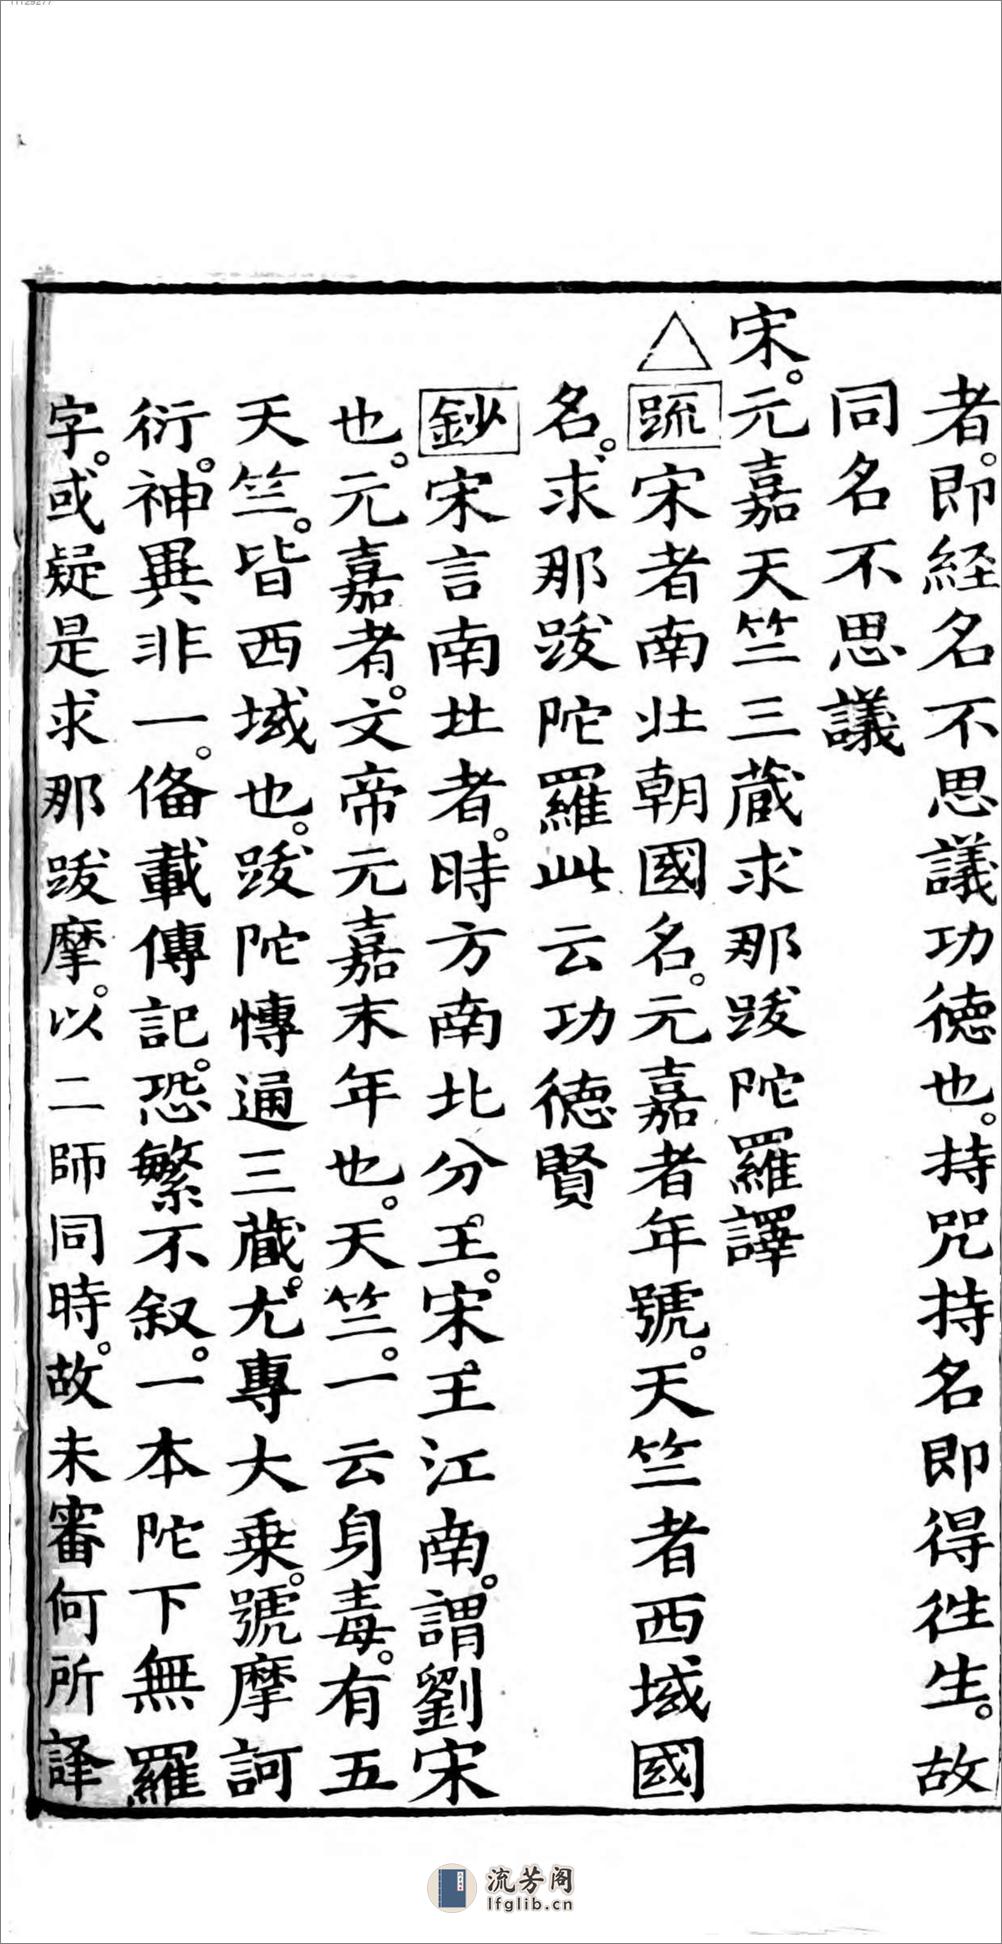 者。即經名不思議功德也。持咒持名即得徃生。故
同名不思議
宋。元嘉天竺三藏求那跋陀羅譯
△疏宋者南北朝國名。元嘉者年號。天竺者西域國
名。求那跋陀羅此云功德賢
鈔宋言南北者。時方南北分王。宋王江南。謂劉宋
也。元嘉者。文帝元嘉末年也。天竺。一云身毒。有五
天竺。皆西域也。跋陀慱通三藏。尤專大乗。號摩訶
衍。神異非一。俻載傳記。恐繁不叙。一本陀下無羅
字。或疑是求那跋摩。以二師同時。故未審何所譯
11129277
流芳阁
lfglib.cn